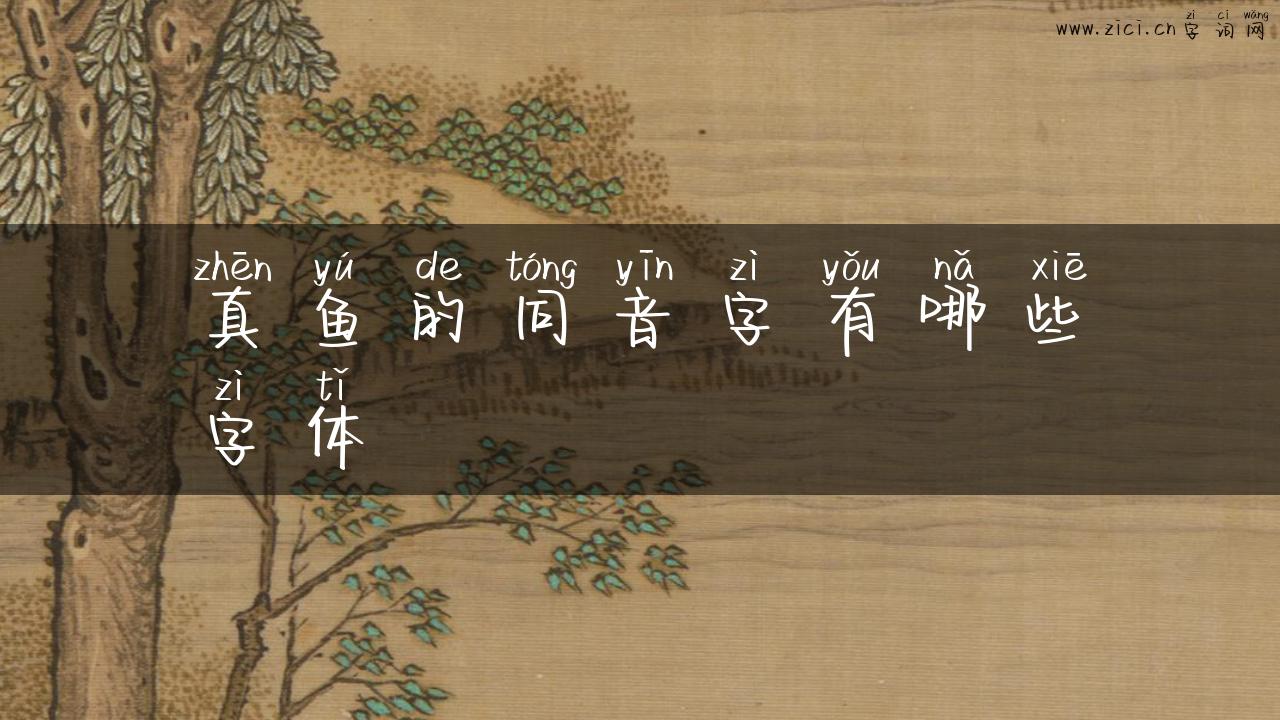 zì cí wǎng
www.zici.cn 字词网
zhēn yú de tóng yīn zì yǒu nǎ xiē
真鱼的同音字有哪些
zì tǐ
字体